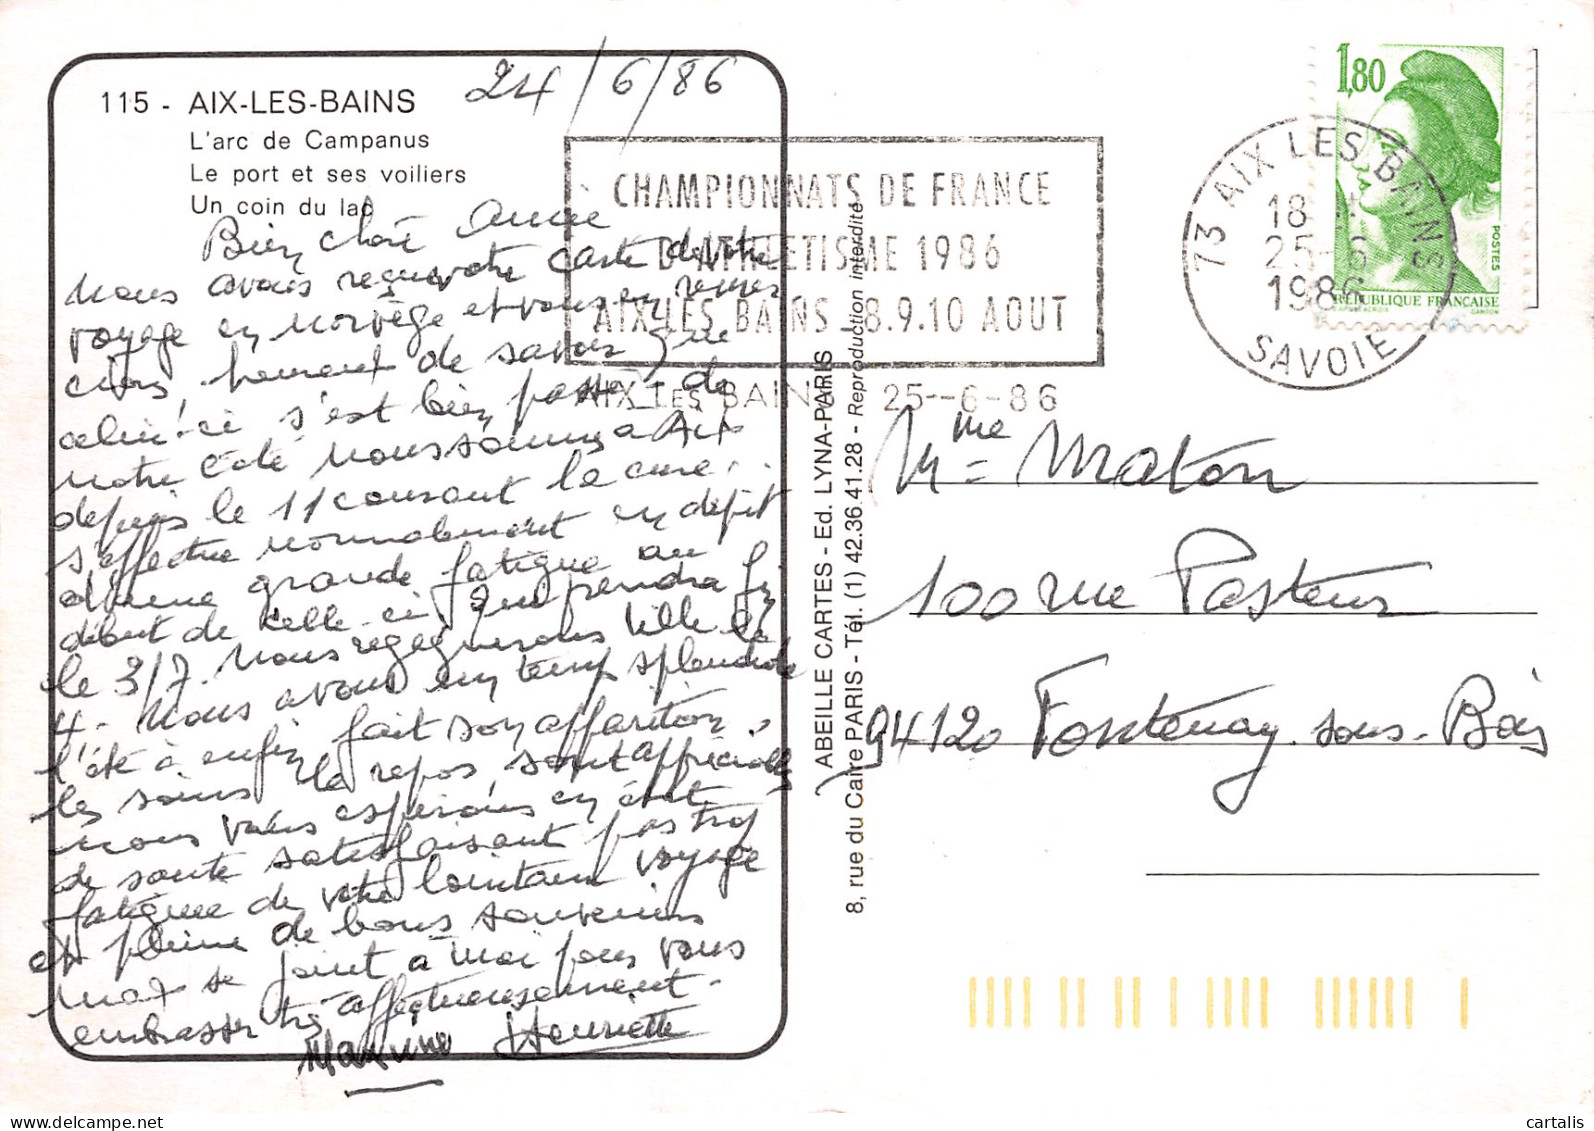 115 - AIX-LES-BAINS
L'arc de Campanus
Le port et ses voiliers
Un coin du lac
24/6/86
Bien chère Amie
Nous avons reçu votre carte de votre
voyage en Norvège et vous en remer
cions, heureux de savoir que
celui-ci s'est bien passé, de
notre côté nous sommes à Aix
depuis le 11 courant la cure
s'effectue normalement en dépit
d'une grande fatigue au
début de celle-ci qui prendra fin
le 3/7. Nous regagnerons Lille le
4. Nous avons un temps splendide
l'été à enfin fait son apparition,
les soins le repos sont appréciables
nous vous espérons en état
de santé satisfaisant pas trop
fatiguée de votre lointain voyage
et pleine de bons souvenirs
Max se joint à moi pour vous
embrasser très affectueusement.
Henriette
CHAMPIONNATS DE FRANCE
D'ATHLETISME 1986
AIX LES BAINS 8.9.10 AOUT
AIX LES BAINS 25-6-86
73 AIX LES BAINS
18 H
25-6
1986
SAVOIE
1,80
POSTES
RÉPUBLIQUE FRANÇAISE
GANDON
ABEILLE CARTES - Ed. LYNA-PARIS
8, rue du Caire PARIS - Tél. (1) 42.36.41.28 - Reproduction interdite
Mme Maton
100 rue Pasteur
94120 Fontenay-sous-Bois
cartalis
delcampe.net